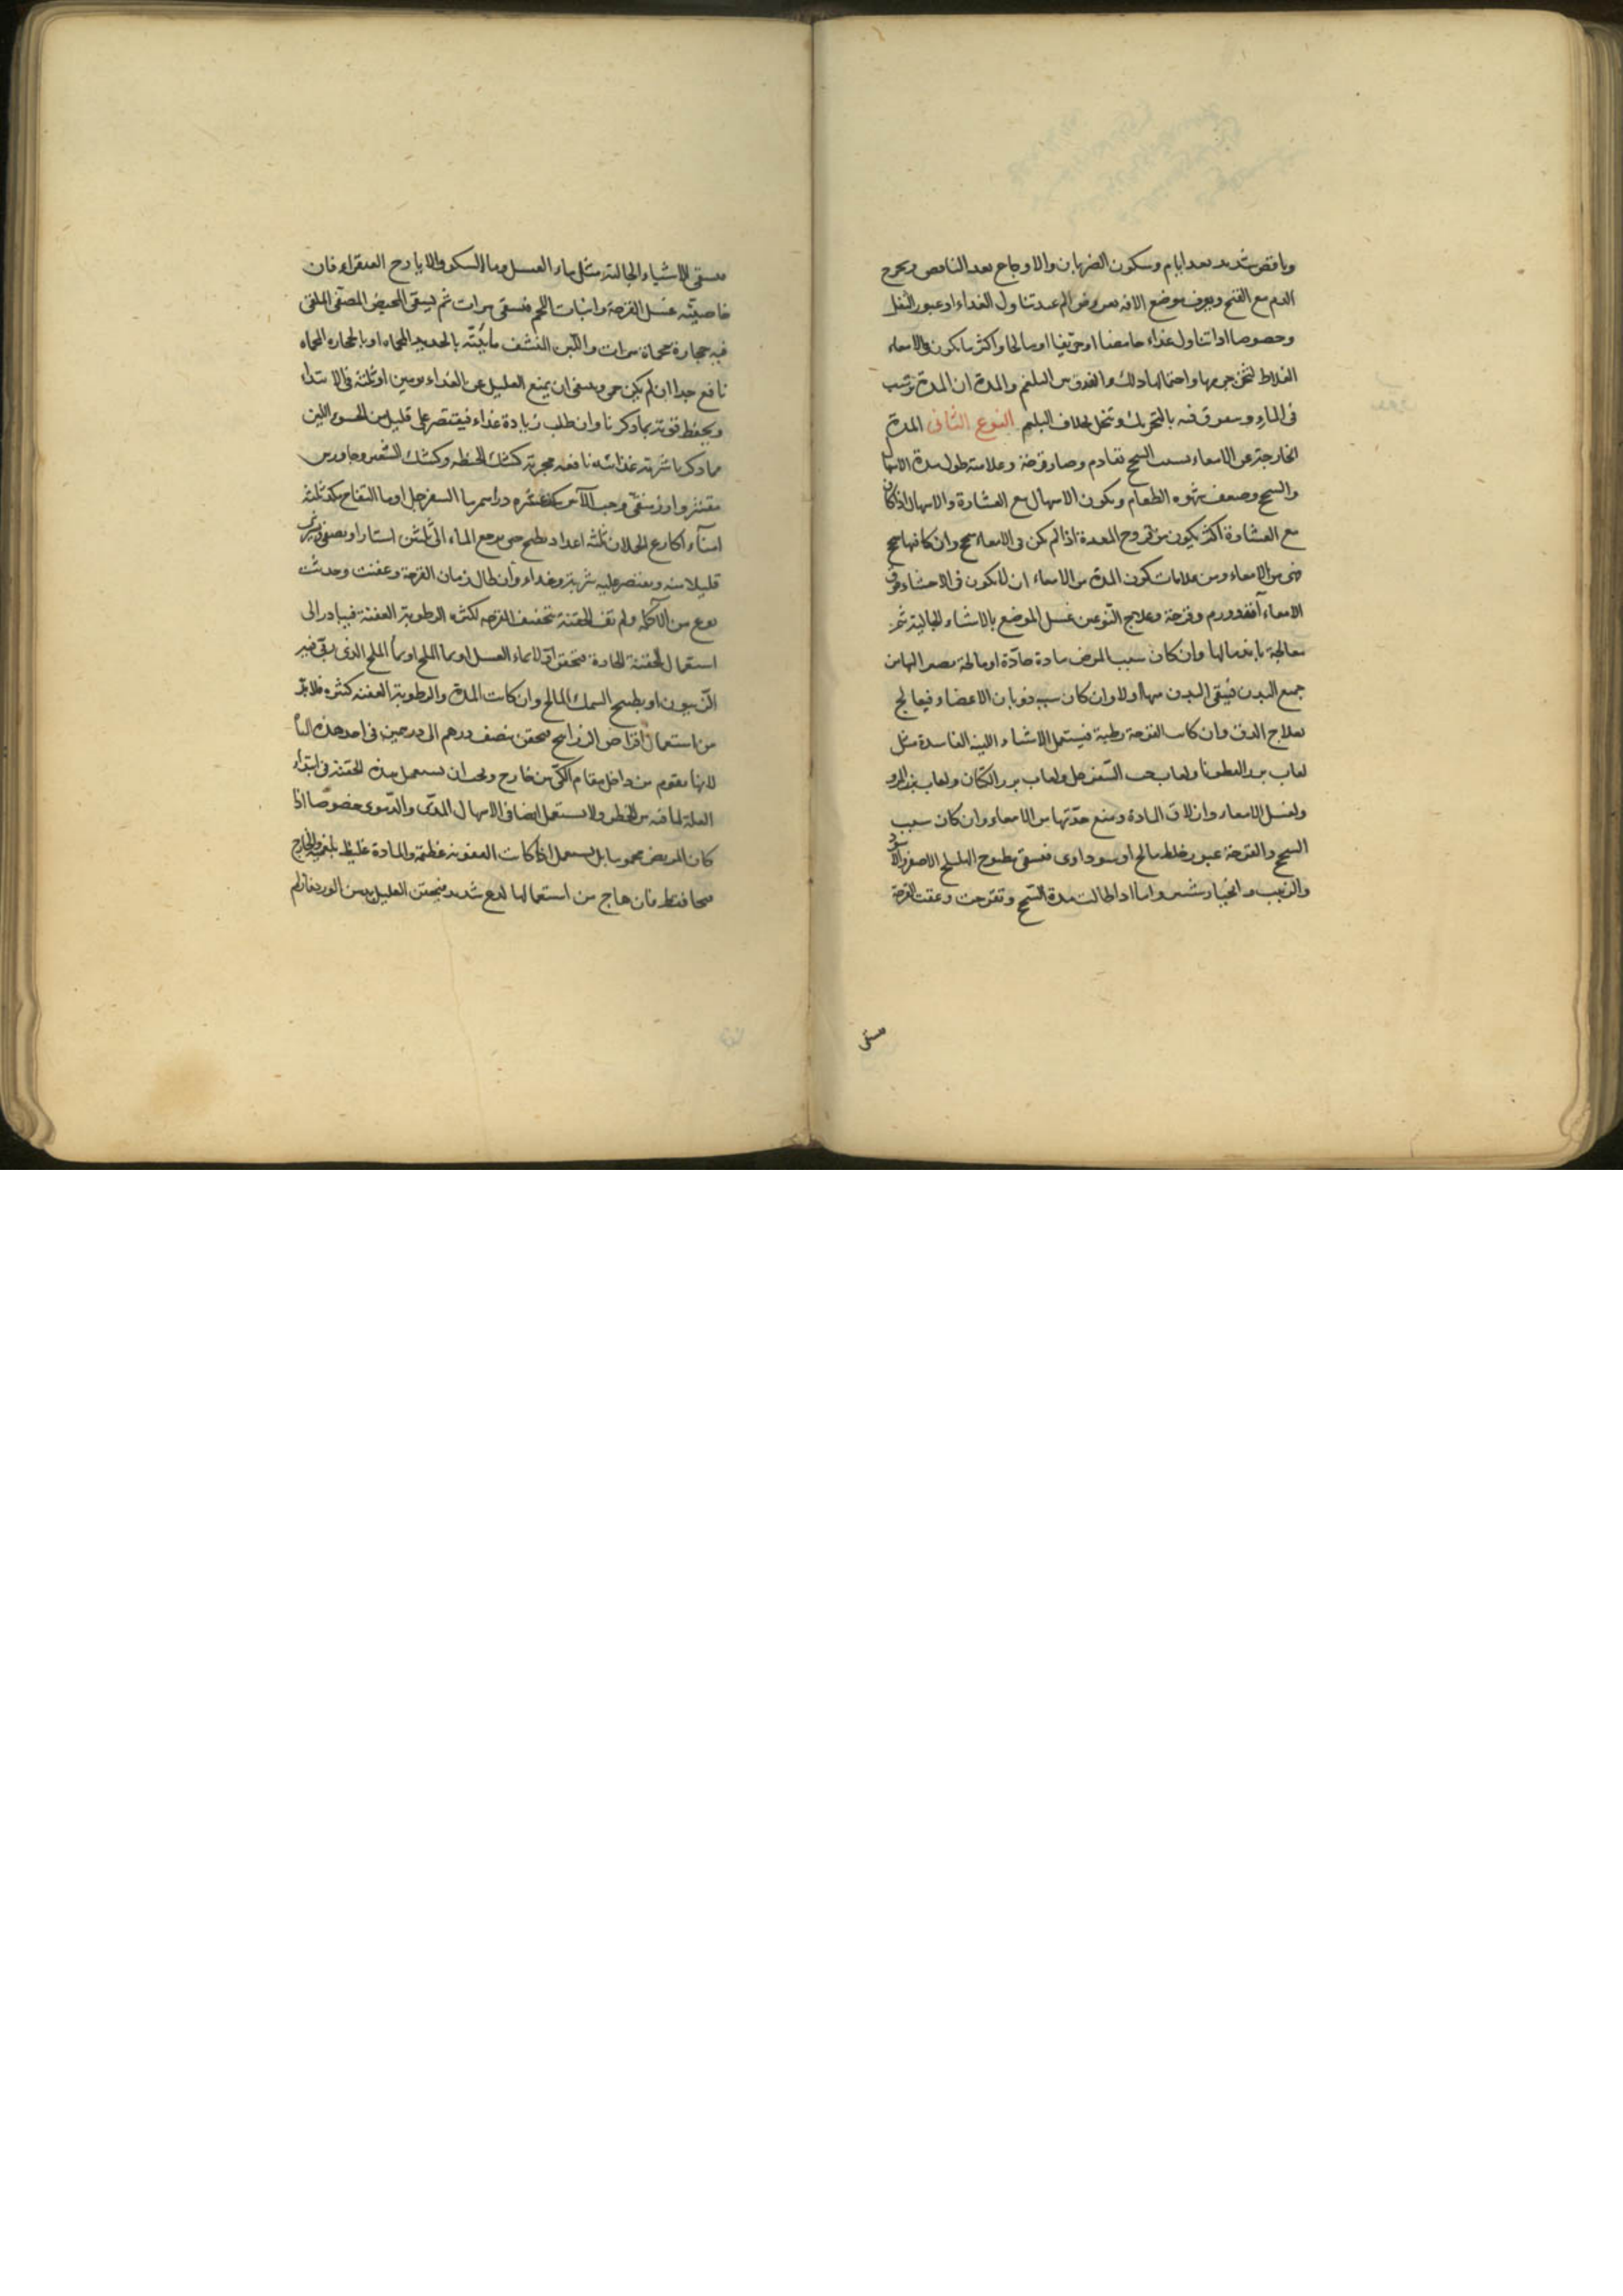 ونافض شديد بعد ايام وسكون الضربان والاوجاع بعد النافض ويخرج
الدم مع القيح ويعرف موضع الافة بعروض الم عند تناول الغذاء او عبور الثفل
وحصوصا اذا تناول غذاء حامضا او حريفا او مالحا واكثر ما يكون فى الامعاء
الغلاط لثخن جرمها واحتمالها ذلك والفرق بين البلغم والمدة ان المدة ترسب
فى الماء و يتفرق فيه بالتحريك وتنحل بخلاف البلغم النوع الثانى المدة
الخارجة عن الامعاء بسبب السحج تقادم وصار قرحة وعلامته طول مدة الاسهال
والسحج وضعف شهوه الطعام ويكون الاسهال مع القشارة والاسهال اذا كان
مع القشارة اكثر يكون من قروح المعدة اذا لم يكن فى الامعاء سحج وان كا فيها سحج
فهى من الامعاء ومن علامات كون المدة من الامعاء ان لا يكون فى الاحشاء فوق
الامعاء آفة وورم وقرحة وعلاج النوعين غسل الموضع بالاشياء الجالية ثم
معالجة ما يندمالها وان كان سبب المرض مادة حادة او مالحة يصير اليها من
جميع البدن فينقى البدن منها اولا وان كان سببه ذوبان الاعضاء فيعالج
بعلاج الدق وان كانت القرحة رطبة فيستعمل الاشياء اللينة الغاسدة مثل
لعاب بزر القطونا ولعاب حب السفرجل ولعاب بزر الكتان ولعاب بزر المرو
ولغسل الامعاء وازلاق المادة ومنع حدتها من الامعاء وان كان سبب
السحج والقرحة عبور خلط مالح او سوداوى فيسقى مطبوخ الهليلج الاصفر والاسود
والزبيب و الخيار شنبر واما اذا طالت مدة السحج وتقرحت وعفنت القرحة
يسقى
يسقى الاشياء الجالية مثل ماء العسل وماء السكر والايارح الفيقراء فان
خاصيته غسل القرحة وانبات اللحم فيسقى مرات ثم يسقى المخيض المصفى الملقى
فيه حجارة محماة مرات واللبن المنشف مائيته بالحديد المحماه او بالحجاره المحماه
نافع جدا ان لم يكن حمى وينبغى ان يمنع العليل عن الغذاء يومين او ثلثة فى الابتداء
ويحفظ قوته بما ذكرنا وان طلب زيادة غذاء فيقتصر على قليل من الحسو اللين
مما ذكرنا شربة غذائية نافعه مجربة كشك الحنطه وكشك الشعير وجاورس
مقشر وارز منقى وحب الآس كف عشره دراهم ماء السفرجل او ماء التفاح بكد ثلثه
امناء اكارع الحملان ثلثه اعداد يطبخ حتى يرجع الماء الى ثلثين استارا ويصفى ويشرب
قليلا منه ويقتصر عليه شربة وغذاء وان طال زمان القرحة وعفنت وحدثت
نوع من الآكله ولم تف الحقنة بتجفيف القرحه لكثرة الرطوبة العفنة فيبادر الى
استعمال الحقنة الحادة فيحقن اولا بماء العسل او بماء الملح او بماء الملح الذى بقى فيه
الزيتون او بطبيخ السمك المالح وان كانت المدة والرطوبة العفنه كثيرة فلا بد
من استعمال اقراص الزرانيخ فيحقن بنصف درهم الى درهمين فى احد هذه المياه
لانها يقوم من داخل مقام الكى من خارج ويجب ان لا يستعمل هذه الحقنة فى ابتداء
العلة لما فيه من الخطر ولا يستعمل ايضا فى الاسهال المدى والدموى خصوصا اذا
كان المريض محموما بل يستعمل اذا كانت العفونه عظيمة والمادة غليظه بلغميه والخارج
محافظا فان هاج من استعمالها لدغ شديد فيحقن العليل بدهن الورد فان لم